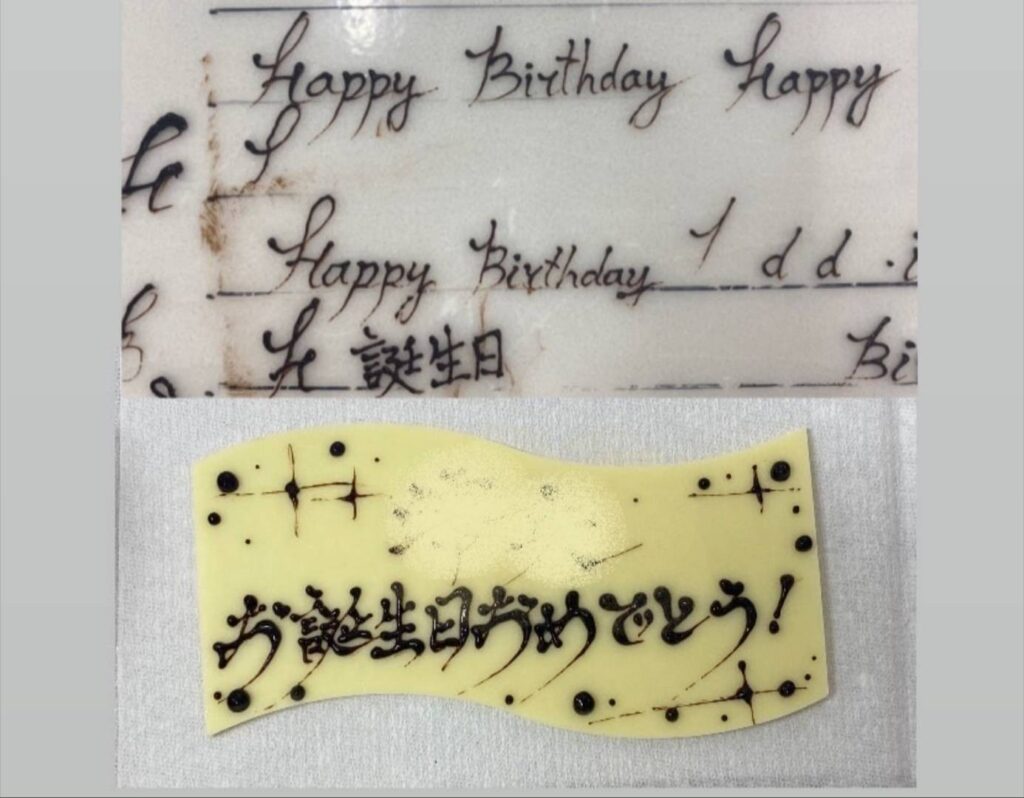 Happy Birthday Happy
H
Happy Birthday 1 d d . i
H 誕生日 Bi
お誕生日おめでとう!